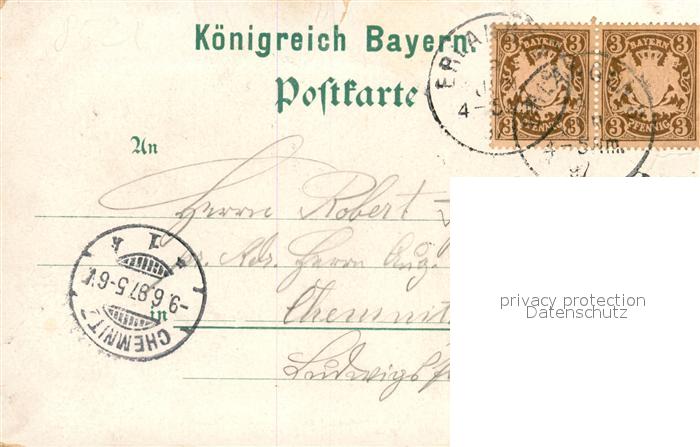 Königreich Bayern
Postkarte
3 BAYERN 3
3 PFENNIG 3
3 BAYERN 3
3 PFENNIG 3
ERLA
4-5
4-5 Nm
97
An
Herrn Robert
pr. Adr. Herrn Aug.
in Chemnit
Ludwigs
CHEMNITZ
1
-9.6.97.5-6
privacy protection
Datenschutz